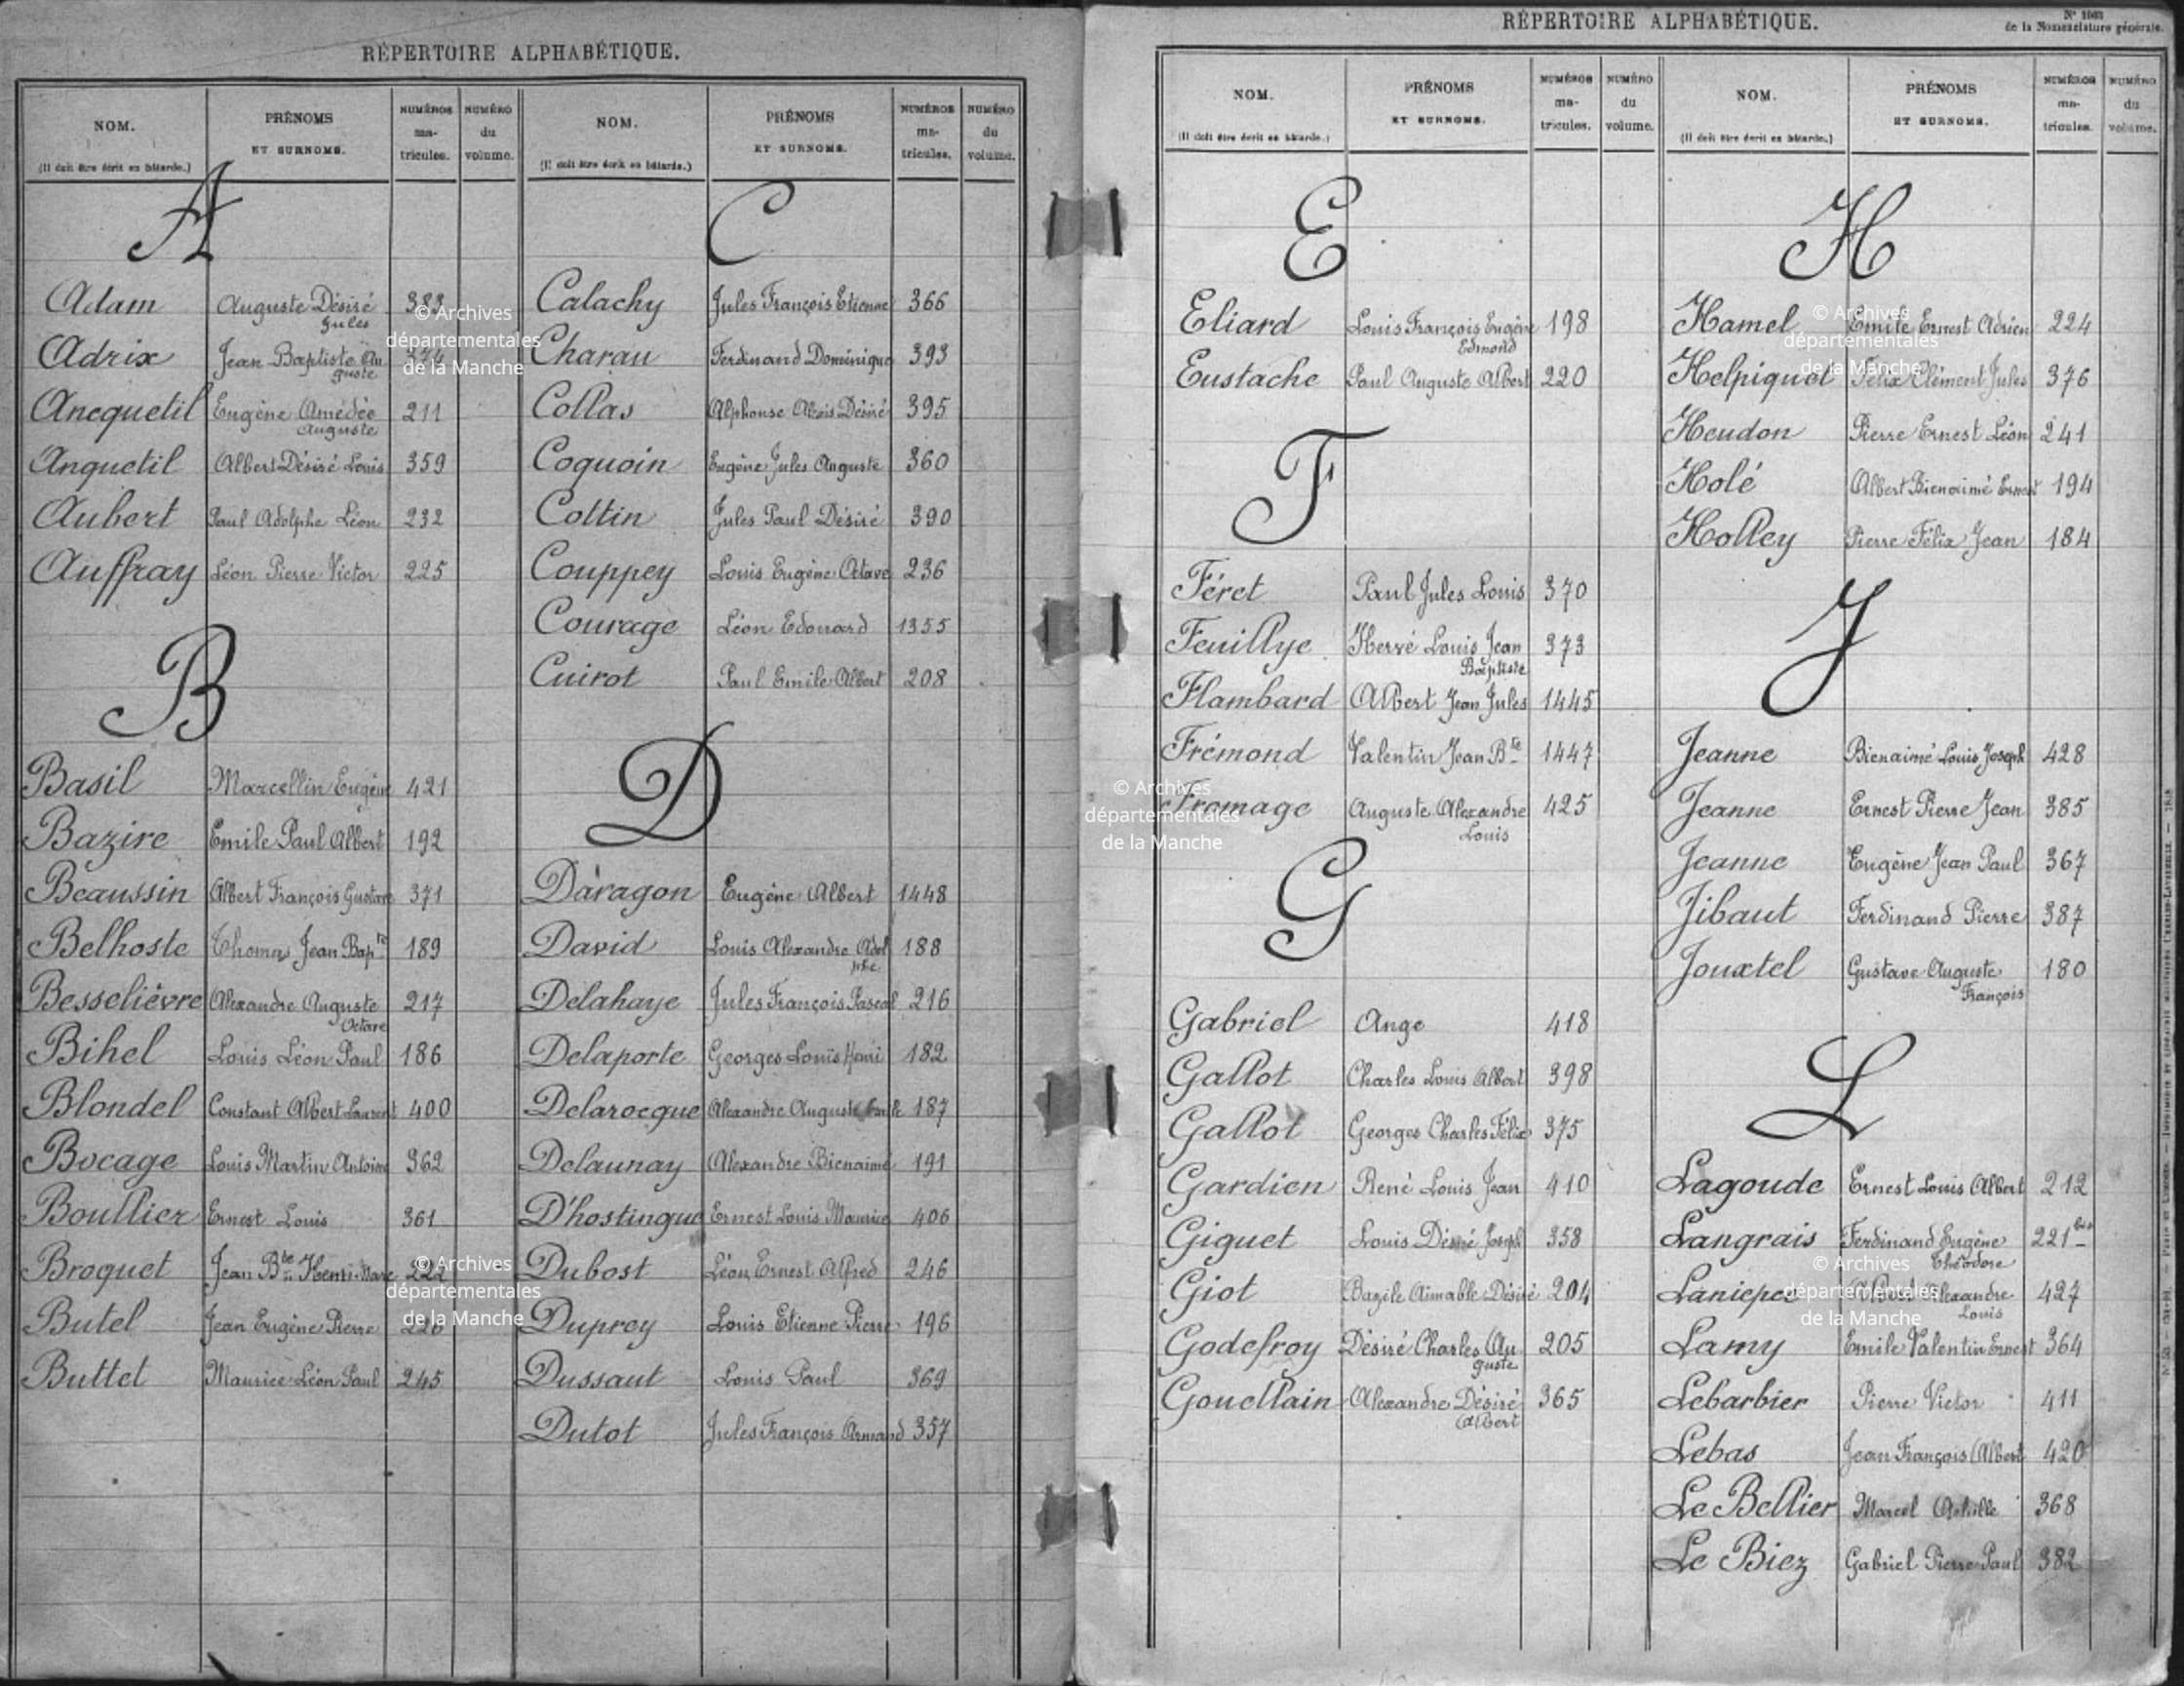 RÉPERTOIRE ALPHABÉTIQUE.
NOM. (Il doit être écrit en bâtarde.) PRÉNOMS ET SURNOMS. NUMÉROS matricules. NUMÉRO du volume.
A
Adam Auguste Désiré Jules 383
Adrix Jean Baptiste Auguste 374
Ancquetil Eugène Amédée Auguste 211
Anquetil Albert Désiré Louis 359
Aubert Paul Adolphe Léon 232
Auffray Léon Pierre Victor 225
B
Basil Marcellin Eugène 421
Bazire Emile Paul Albert 192
Beaussin Albert François Gustave 371
Belhoste Thomas Jean Bapte 189
Besselièvre Alexandre Auguste Octave 217
Bihel Louis Léon Paul 186
Blondel Constant Albert Laurent 400
Bocage Louis Martin Antoine 362
Boullier Ernest Louis 361
Broquet Jean Bte Henri Marc 222
Butel Jean Eugène Pierre 226
Buttet Maurice Léon Paul 245
NOM. (Il doit être écrit en bâtarde.) PRÉNOMS ET SURNOMS. NUMÉROS matricules. NUMÉRO du volume.
C
Calachy Jules François Etienne 366
Charau Ferdinand Dominique 393
Collas Alphonse Alexis Désiré 395
Coquoin Eugène Jules Auguste 360
Cottin Jules Paul Désiré 390
Couppey Louis Eugène Octave 236
Courage Léon Edouard 1355
Cuirot Paul Emile Albert 208
D
Daragon Eugène Albert 1448
David Louis Alexandre Adolphe 188
Delahaye Jules François Pascal 216
Delaporte Georges Louis Henri 182
Delarocque Alexandre Auguste 187
Delaunay Alexandre Bienaimé 191
D'hostingue Ernest Louis Maurice 406
Dubost Léon Ernest Alfred 246
Duprey Louis Etienne Pierre 196
Dussaut Louis Paul 369
Dutot Jules François Armand 357
RÉPERTOIRE ALPHABÉTIQUE.
N° 1663
de la Nomenclature générale.
NOM. (Il doit être écrit en bâtarde.) PRÉNOMS ET SURNOMS. NUMÉROS matricules. NUMÉRO du volume.
E
Eliard Louis François Eugène Edmond 198
Eustache Paul Auguste Albert 220
F
Féret Paul Jules Louis 370
Feuillye Hervé Louis Jean Baptiste 373
Flambard Albert Jean Jules 1445
Frémond Valentin Jean Bte 1447
Fromage Auguste Alexandre Louis 425
G
Gabriel Ange 418
Gallot Charles Louis Albert 398
Gallot Georges Charles Félix 375
Gardien René Louis Jean 410
Giguet Louis Désiré Joseph 358
Giot Bazile Aimable Désiré 204
Godefroy Désiré Charles Auguste 205
Gouellain Alexandre Désiré Albert 365
NOM. (Il doit être écrit en bâtarde.) PRÉNOMS ET SURNOMS. NUMÉROS matricules. NUMÉRO du volume.
H
Hamel Emile Ernest Adrien 224
Helpiquet Félix Clément Jules 376
Heudon Pierre Ernest Léon 241
Holé Albert Bienaimé Ernest 194
Holley Pierre Félix Jean 184
J
Jeanne Bienaimé Louis Joseph 428
Jeanne Ernest Pierre Jean 385
Jeanne Eugène Jean Paul 367
Jibaut Ferdinand Pierre 387
Jouxtel Gustave Auguste François 180
L
Lagoude Ernest Louis Albert 212
Langrais Ferdinand Eugène Théodore 221 bis
Laniepce Alexandre Louis 427
Lamy Emile Valentin Ernest 364
Lebarbier Pierre Victor 411
Lebas Jean François Albert 420
Le Bellier Marcel Achille 368
Le Biez Gabriel Pierre Paul 382
© Archives
départementales
de la Manche
© Archives
départementales
de la Manche
© Archives
départementales
de la Manche
© Archives
départementales
de la Manche
© Archives
départementales
de la Manche